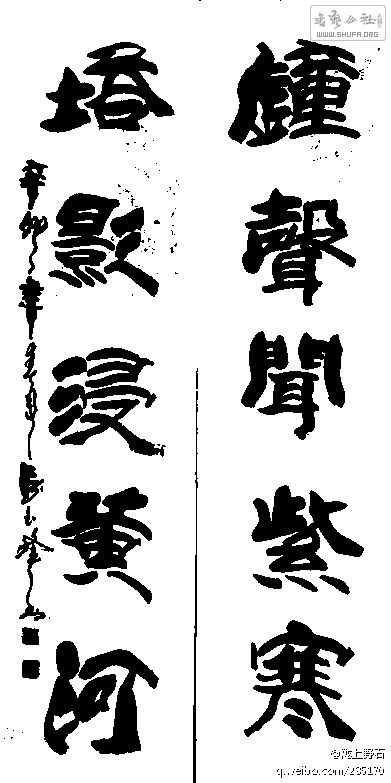 書藝公社
WWW.SHUFA.ORG
鐘聲聞紫寒
塔影浸黄河
辛卯
q.weibo.com/235170